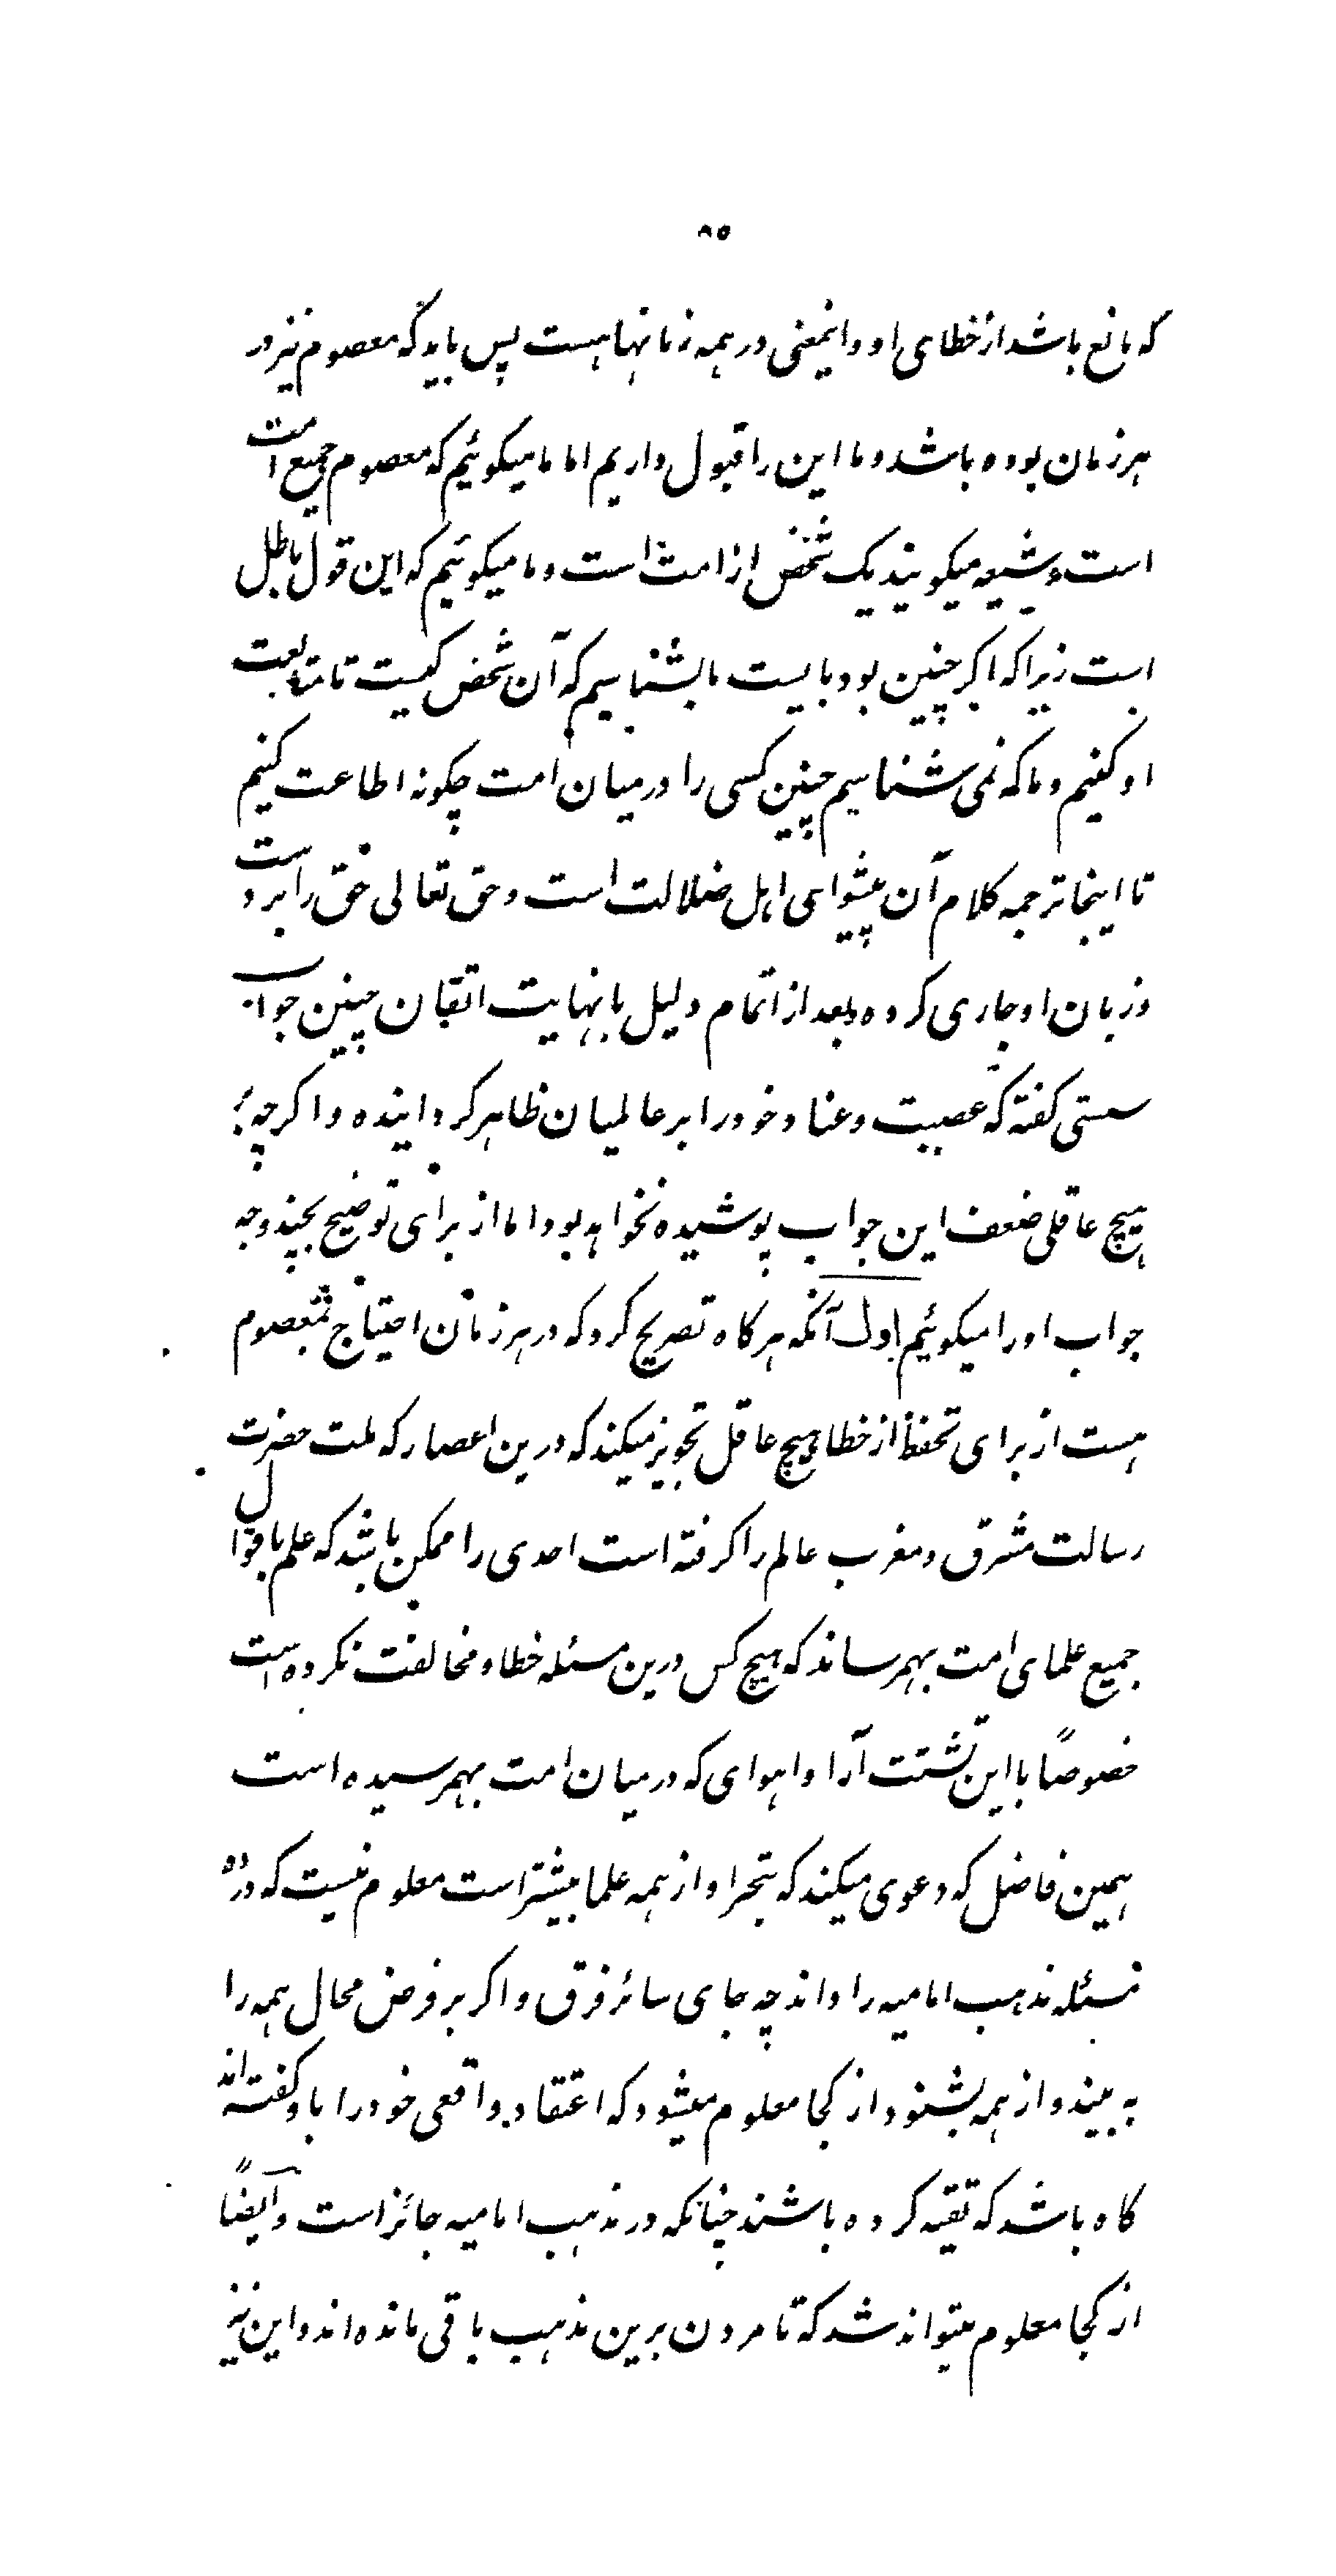 ۸۵
که مانع باشد از خطای او و اینمعنی در همه زمانها هست پس باید که معصوم نیز در
هر زمان بوده باشد و ما این را قبول داریم اما ما میکوئیم که معصوم جمیع امت
است و شیعه میکویند یک شخص از امت است و ما میکوئیم که این قول باطل
است زیرا که اکر چنین بود بایست ما بشناسیم که آن شخص کیست تا متابعت
او کنیم و ما که نمی شناسیم چنین کسی را در میان امت چکونه اطاعت کنیم
تا اینجا ترجمه کلام آن پیشوای اهل ضلالت است و حق تعالی حق را بر دست
و زبان او جاری کرده و بعد از اتمام دلیل با نهایت اتقان چنین جواب
سستی کفته که عصبیت و عناد خود را بر عالمیان ظاهر کردانیده و اکرچه بر
هیچ عاقلی ضعف این جواب پوشیده نخواهد بود اما از برای توضیح بچند وجه
جواب او را میکوئیم اول آنکه هرکاه تصریح کرد که در هر زمان احتیاج بمعصوم
هست از برای تحفظ از خطا هیچ عاقل تجویز میکند که درین اعصار که ملت حضرت
رسالت مشرق و مغرب عالم را کرفته است احدی را ممکن باشد که علم باقوال
جمیع علمای امت بهم رساند که هیچ کس درین مسئله خطا و مخالفت نکرده است
خصوصاً با این تشتت آرا و اهوای که در میان امت بهم رسیده است
همین فاضل که دعوی میکند که تبحر او از همه علما بیشتر است معلوم نیست که در
مسئله مذهب امامیه را داند چه جای سائر فرق و اکر بر فرض محال همه را
به بیند و از همه بشنود از کجا معلوم میشود که اعتقاد واقعی خود را باو کفته اند
کاه باشد که تقیه کرده باشند چنانکه در مذهب امامیه جائز است و ایضاً
از کجا معلوم میتواند شد که تا مردن برین مذهب باقی مانده اند و این نیز